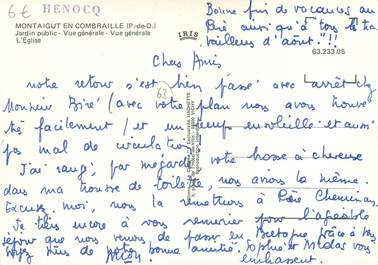 6€ HENOCQ
MONTAIGUT EN COMBRAILLE (P.-de-D.)
Jardin public - Vue générale - Vue générale
L'Eglise
IRIS
63.233.05
63
Bonne fin de vacances au
ainsi qu'à tous les tra
vailleurs d'août !!!
Chers Amis
notre retour s'est bien passé avec arrêt chez
Monsieur Biré (avec votre plan nous avons trouvé
très facilement) et un temps ensoleillé et aussi
pas mal de circulation.
J'ai rangé, par mégarde votre brosse à cheveux
dans ma trousse de toilette, nous avions la même.
Excusez moi, nous la remettrons à Père
Je tiens encore à vous remercier pour l'agréable
séjour que nous venons de passer en Bretagne grâce à vous
Soyez sûrs de notre bonne amitié. Sophie et Nicolas vous
embrassent.